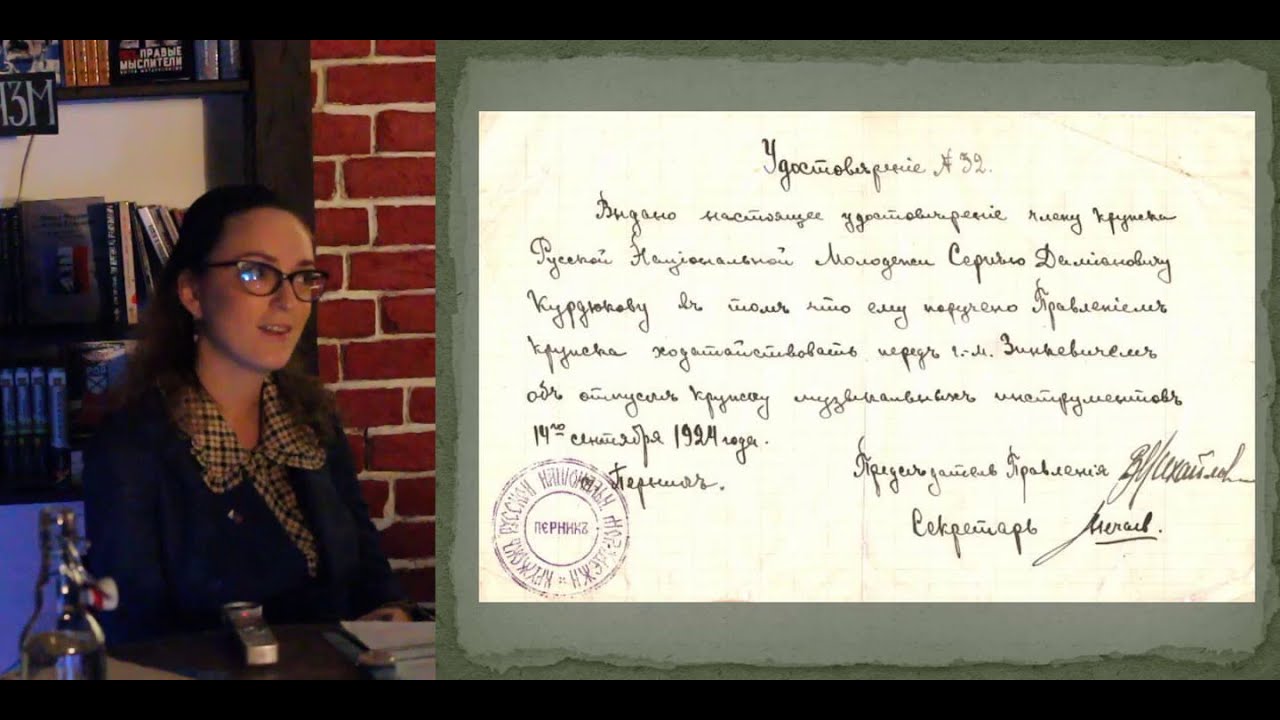 ПРАВЫЕ
МЫСЛИТЕЛИ
ИЗМ
Удостовѣреніе № 32.
Выдано настоящее удостовѣреніе члену кружка
Русской Національной Молодежи Сергѣю Даміановичу
Курдюкову въ томъ что ему поручено Правленіемъ
кружка ходатайствовать передъ г.-м. Зинкевичемъ
объ отпускѣ кружку музыкальныхъ инструментовъ
14го сентября 1924 года.
Перникъ.
Предсѣдатель Правленія Михайлов
Секретарь Нечаев.
КРУЖОКЪ РУССКОЙ НАЦІОНАЛЬН МОЛОДЕЖИ
ПЕРНИКЪ